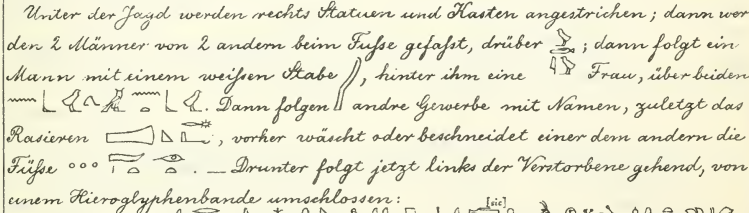 Unter der Jagd werden rechts Statuen und Kasten angestrichen; dann wer
den 2 Männer von 2 andern beim Fuſse gefaſst, drüber ; dann folgt ein
Mann mit einem weiſsen Stabe , hinter ihm eine Frau, über beiden
. Dann folgen andre Gewerbe mit Namen, zuletzt das
Rasieren , vorher wäscht oder beschneidet einer dem andern die
Füſse . — Drunter folgt jetzt links der Verstorbene gehend, von
einem Hieroglyphenbande umschlossen:
[sic]